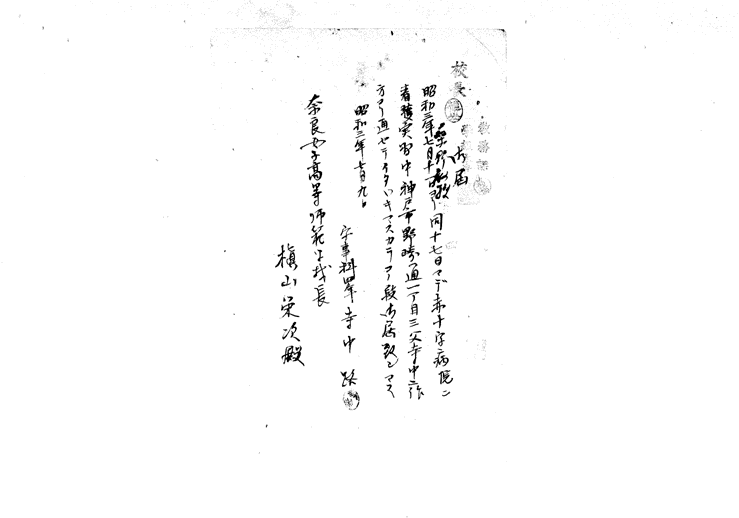 校長
御届
昭和三年七月十一日ヨリ同十七日マデ赤十字病院ニ
看護実習中神戸市野崎通一丁目三父寺中
方ヨリ通セテイタゞキマスカラコノ段御届致シマス
昭和三年七月九日
家事科四年寺中
奈良女子高等師範学校長
槇山栄次殿